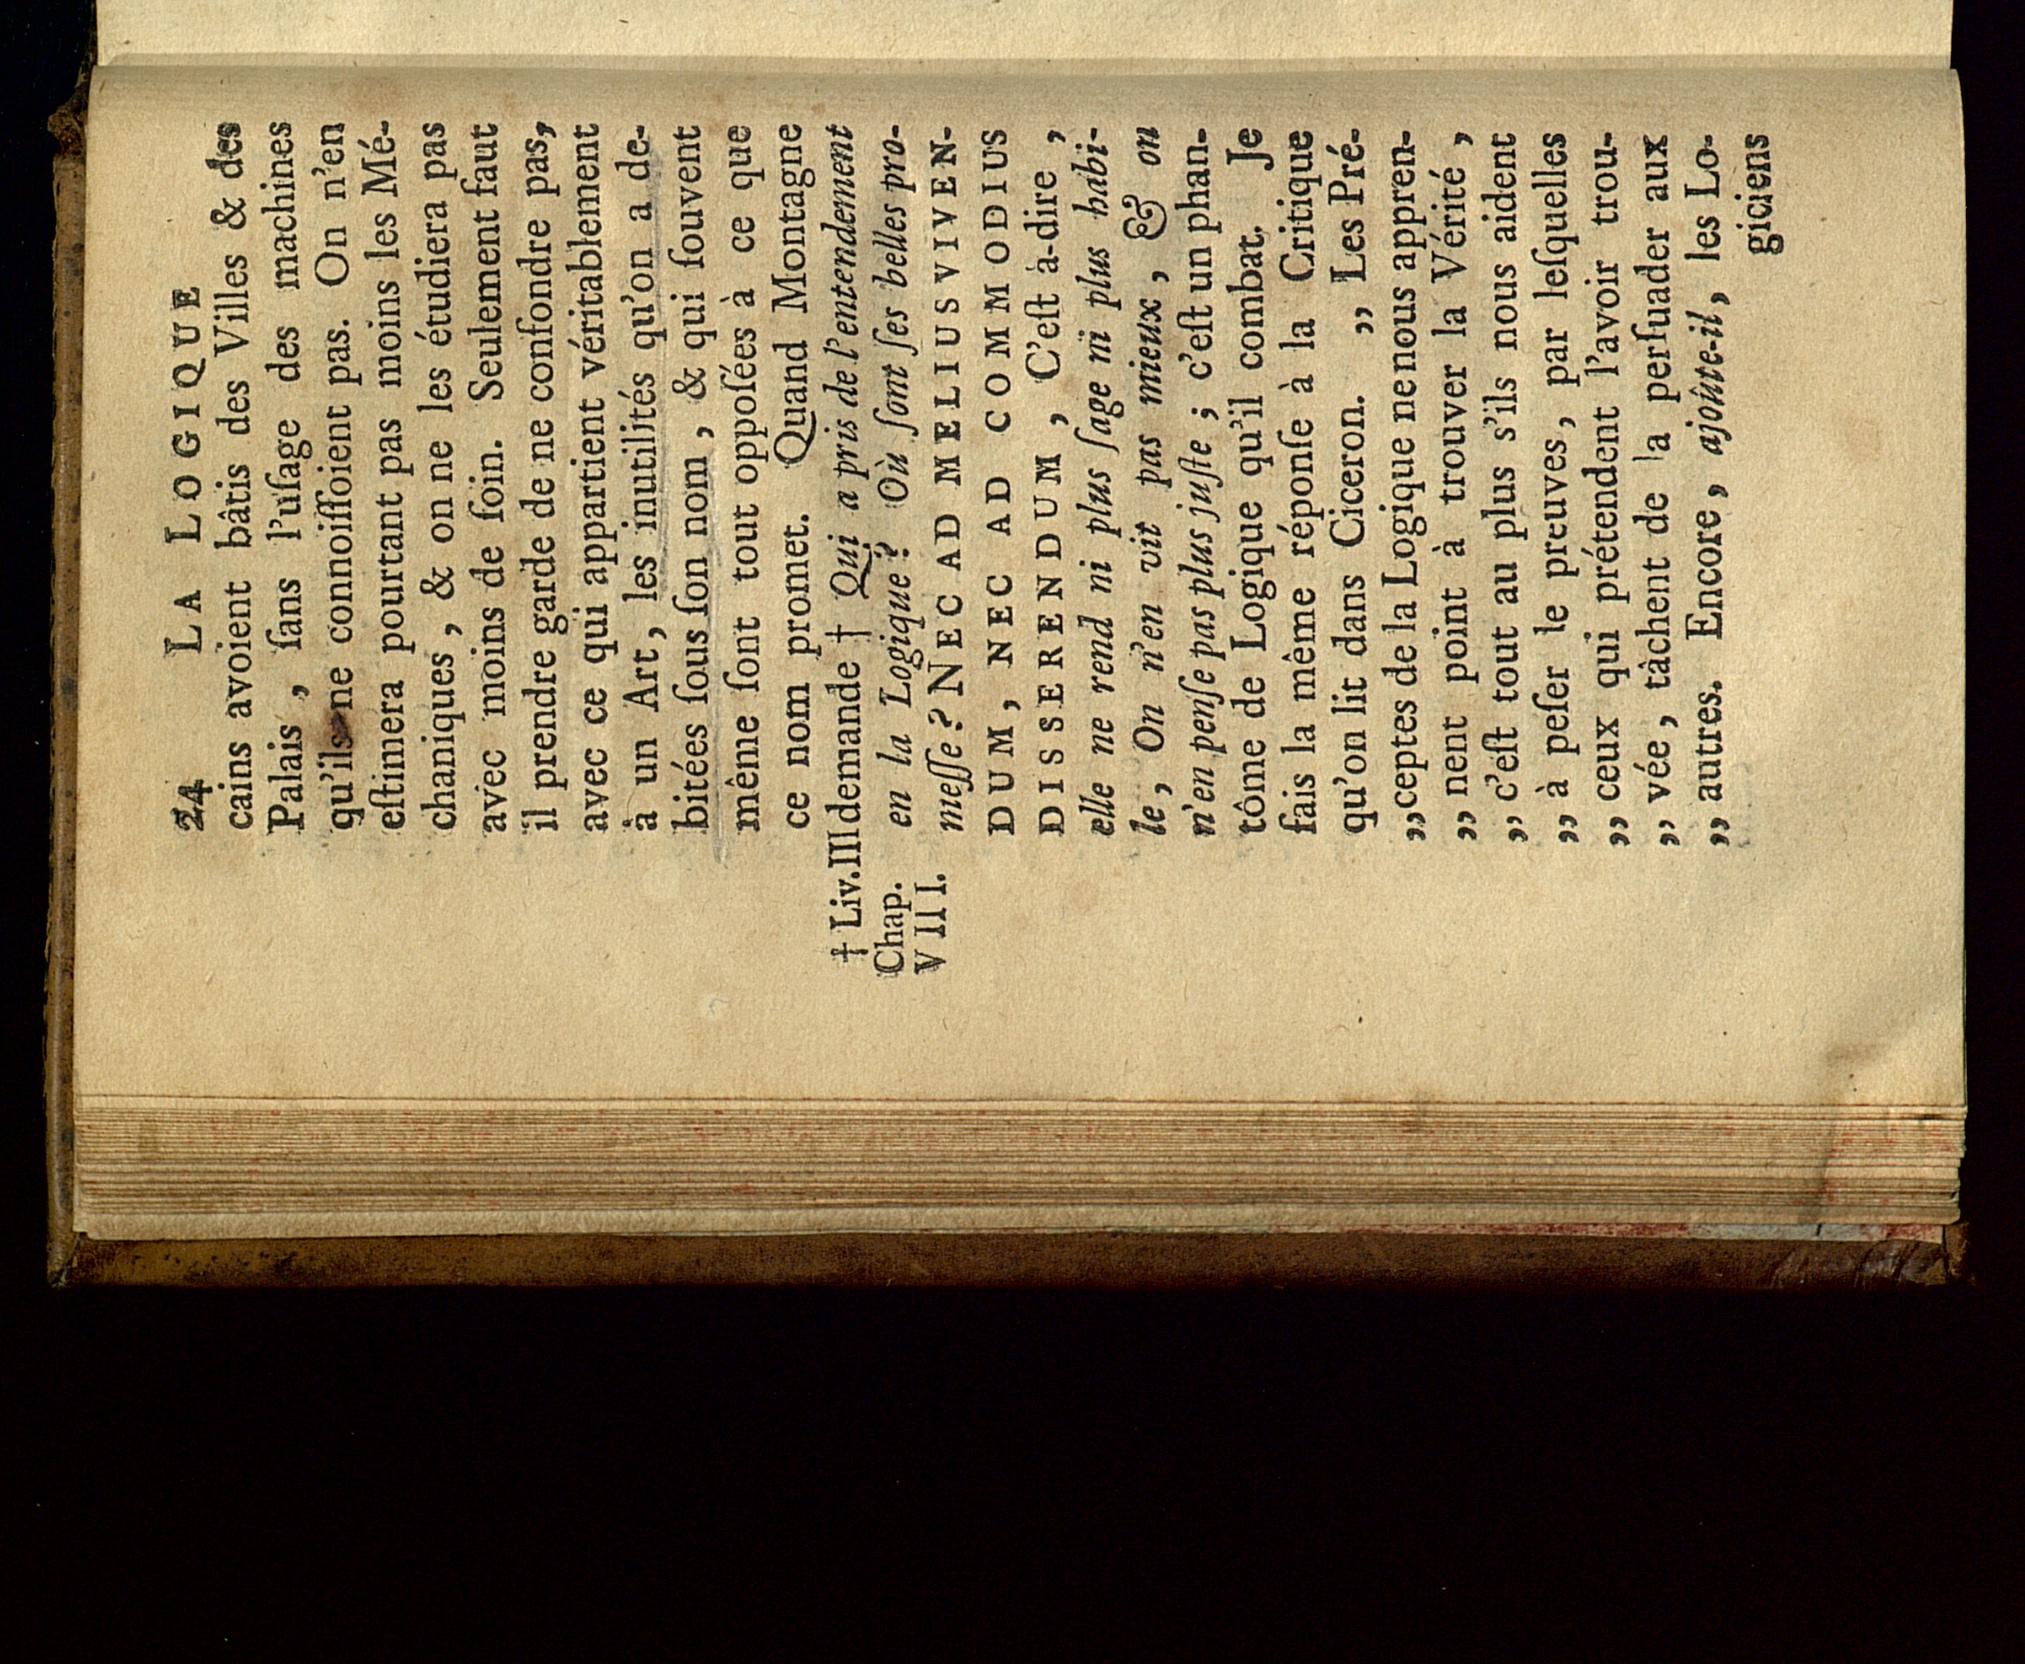 24 LA LOGIQUE
cains avoient bâtis des Villes & des
Palais, ſans l'uſage des machines
qu'ils ne connoiſſoient pas. On n'en
eſtimera pourtant pas moins les Mé-
chaniques, & on ne les étudiera pas
avec moins de ſoin. Seulement faut
il prendre garde de ne confondre pas,
avec ce qui appartient véritablement
à un Art, les inutilités qu'on a dé-
bitées ſous ſon nom, & qui ſouvent
même ſont tout oppoſées à ce que
ce nom promet. Quand Montagne
demande † Qui a pris de l'entendement
en la Logique? Où ſont ſes belles pro-
meſſe? NEC AD MELIUS VIVEN-
DUM, NEC AD COMMODIUS
DISSERENDUM, C'eſt à-dire,
elle ne rend ni plus ſage ni plus habi-
le, On n'en vit pas mieux, & on
n'en penſe pas plus juſte; c'eſt un phan-
tôme de Logique qu'il combat. Je
fais la même réponſe à la Critique
qu'on lit dans Ciceron. ,, Les Pré-
,, ceptes de la Logique ne nous appren-
,, nent point à trouver la Vérité,
,, c'eſt tout au plus s'ils nous aident
,, à peſer le preuves, par leſquelles
,, ceux qui prétendent l'avoir trou-
,, vée, tâchent de la perſuader aux
,, autres. Encore, ajoûte-il, les Lo-
giciens
† Liv. III
Chap.
VIII.